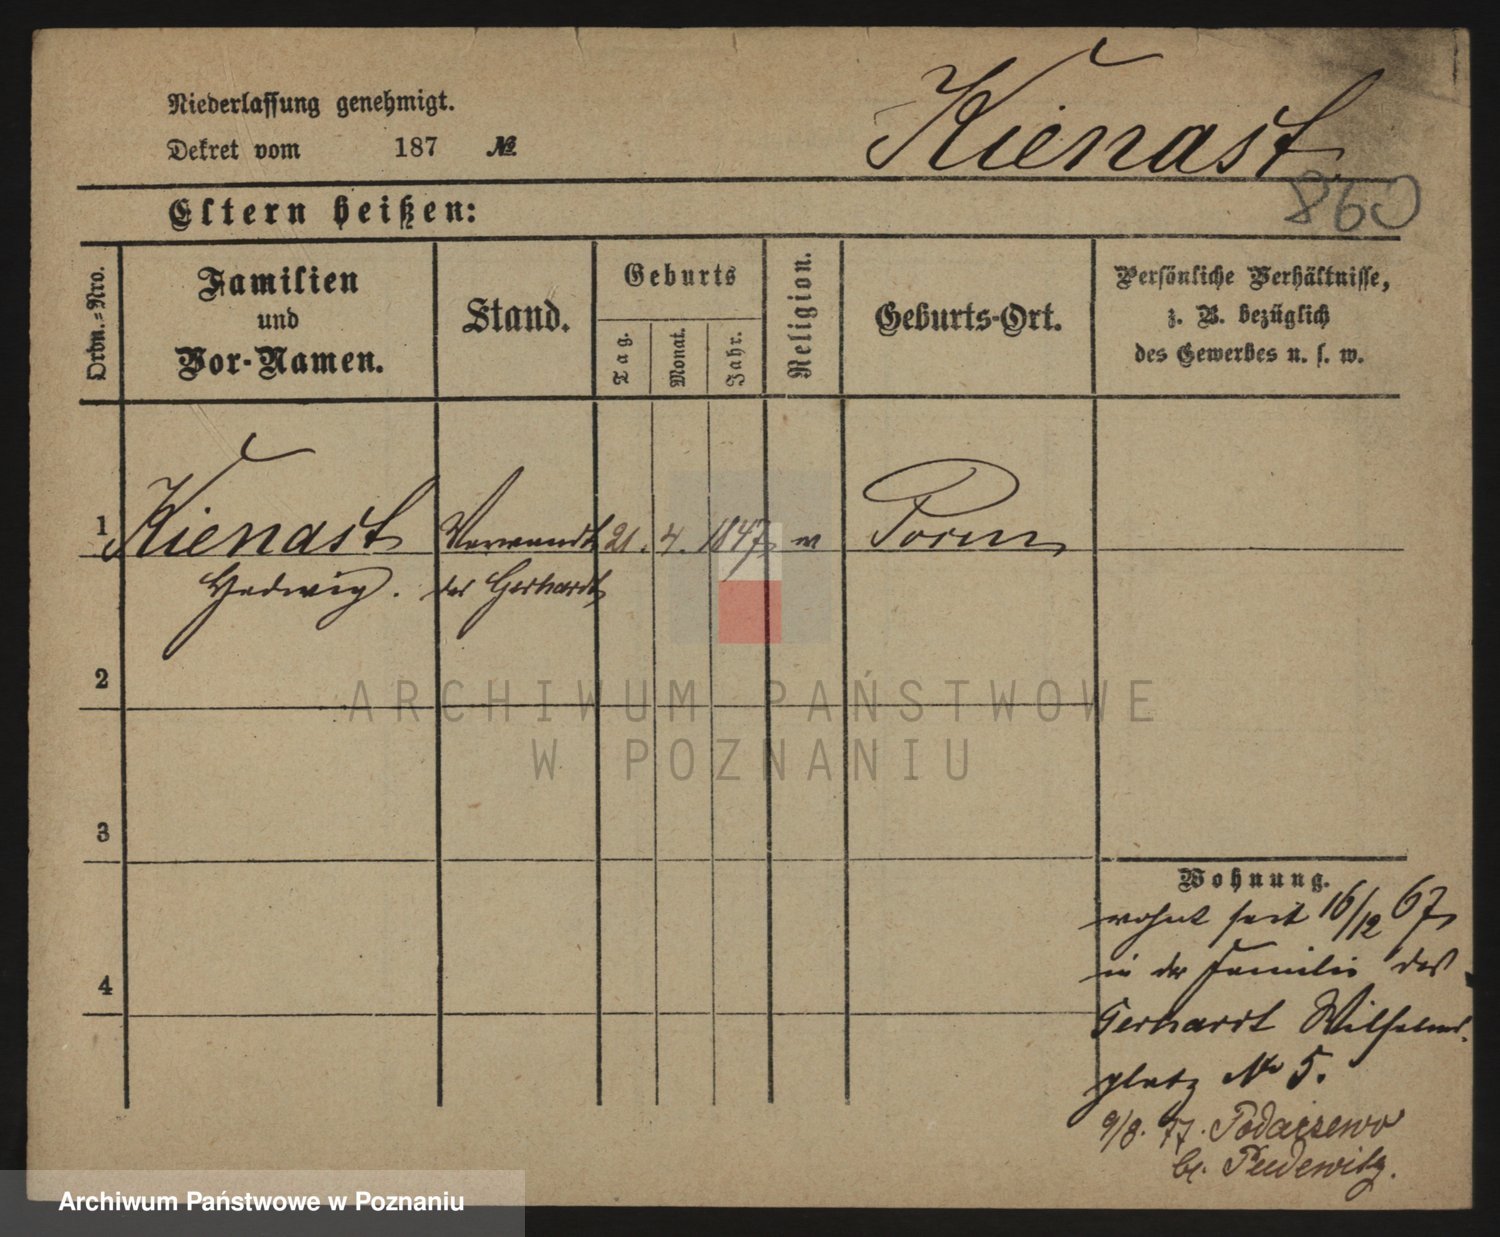 Niederlassung genehmigt.
Dekret vom 187 №
Kienast
860
Eltern heißen:
Ordn.-Nro.
Familien
und
Vor-Namen.
Stand.
Geburts
Tag.
Monat.
Jahr.
Religion.
Geburts-Ort.
Persönliche Verhältnisse,
z. B. bezüglich
des Gewerbes u. s. w.
1 Kienast Verwandt 21. 4. 1847
Hedwig. des Gerhardt
2
3
4
Wohnung.
wohnt seit 16/12 67
in der Familie des
Gerhardt Wilhelms-
platz № 5.
9/8. 77. Podarzewo
b. Pudewitz.
ARCHIWUM PAŃSTWOWE
W POZNANIU
Archiwum Państwowe w Poznaniu